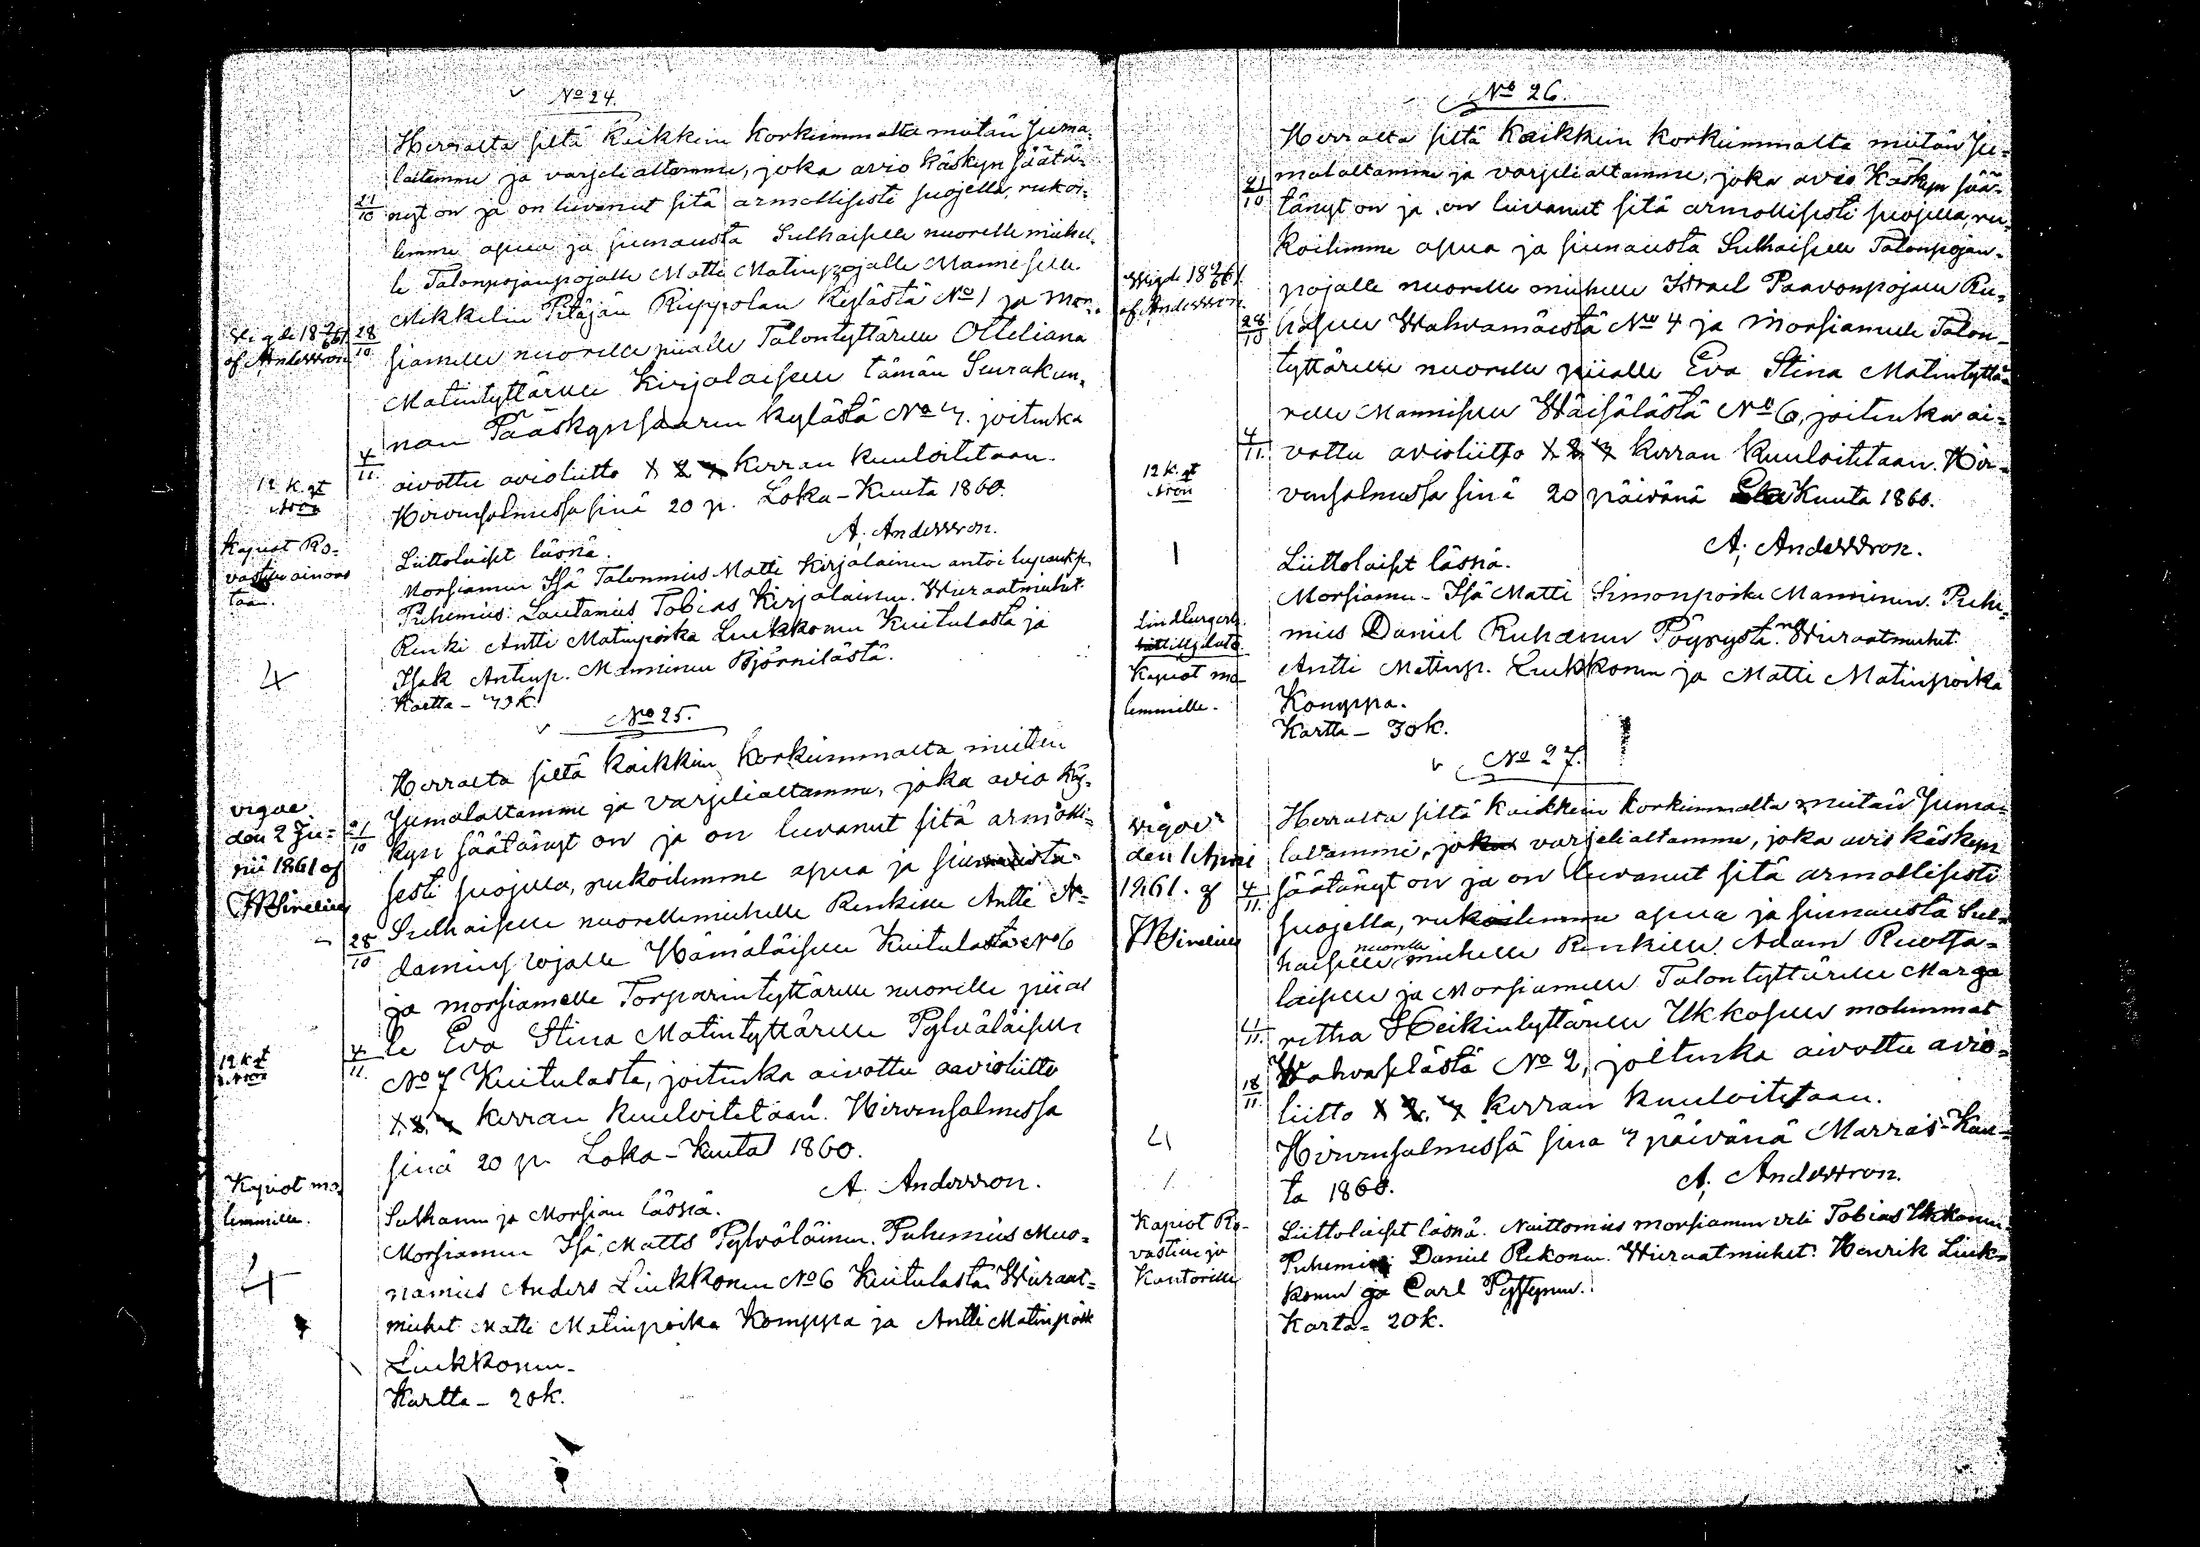 No 24.
Herralta siltä Kaikkein korkeimmalta meitän Juma-
laltamme ja varjelialtamme, joka avio käskyn säätä-
21/10 nyt on ja on luvanut sitä armollisesti suojella, rukoi-
lemme apua ja siunausta Sulhaiselle nuorelle miehel-
le Talonpojanpojalle Matti Matinpojalle Manniselle
Mikkelin Pitäjän Rieppolan kylästä No 1 ja Mor-
Vigde 18 2/6 61 af Andersson
28/10 siamelle nuorelle piialle Talontyttärelle Otteliana
Matintyttärelle Kirjalaiselle tämän Seurakun-
nan Pääskynsaaren kylästä No 7. joitenka
4/11 aivottu avioliitto 1 2 3 kerran kuuloitetaan.
12 k. at
Hirvensalmessa sinä 20 p. Loka-Kuuta 1860.
A. Andersson.
Kapiot Ro-
vastin ainoas
taan.
Liittolaiset läsnä.
Morsiamen Isä Talonmies Matti Kirjalainen antoi
Puhemies: Lautamies Tobias Kirjalainen. Wieraatmiehet
Renki Antti Matinpoika Liukkonen Kuitulasta ja
4
Isak Antinp. Manninen Björnilästä.
Kartta - k.
No 25.
Herralta siltä kaikkein korkeimmalta meiten
vigde
den 2 Ju-
nii 1861 af
Sirelius
21/10 Jumalaltamme ja varjelialtamme, joka avio käs-
kyn säätänyt on ja on luvanut sitä armolli-
sesti suojella, rukoilemme apua ja siunausta
Sulhaiselle nuorellemiehelle Renkille Antti A-
28/10 daminpojalle Hämäläiselle Kuitulasta No 6
ja morsiamelle Torparintyttärelle nuorelle piial
le Eva Stina Matintyttärelle Pylväläiselle
12 k at
4/11. No 7 Kuitulasta, joitenka aivottu aavioliitto
1. 2. 3 kerran kuuloitetaan. Hirvensalmessa
sinä 20 p. Loka-Kuuta 1860.
A. Andersson.
Kapiot mo-
lemmille.
Sulhanen ja Morsian läsnä.
Morsiamen Isä, Matts Pylväläinen. Puhemies Muo-
4
namies Anders Liukkonen No 6 Kuitulasta. Wieraat-
miehet Matti Matinpoika Komppa ja Antti Matinpoik
Liukkonen.
Kartta - 20 k.
No 26.
Herralta siltä Kaikkein korkeimmalta meitän Ju-
21/10 malaltamme ja varjelialtamme, joka avio Käskyn sää-
tänyt on ja on luvanut sitä armollisesti suojella, ru-
koilemme apua ja siunausta Sulhaiselle Talonpojan-
Vigde 18 2/6 61.
af Andersson.
pojalle nuorelle miehelle Israel Paavonpojalle Ru-
28/10 haselle Wahvamäestä No 4 ja Morsiamelle Talon-
tyttärelle nuorelle piialle Eva Stina Matintyttä-
relle Manniselle Wäisälästä No 6, joitenka ai-
4/11. vottu avioliitto 1. 2. 3 kerran kuuloitetaan. Hir-
12 k. at
vensalmessa sinä 20 päivänä Loka Kuuta 1860.
A. Andersson.
1
Liittolaiset läsnä.
Morsiamen - Isä Matti Simonpoika Manninen. Puhe-
mies Daniel Ruhanen Pöyrystä. Wieraatmiehet
Kapiot mo-
lemmille.
Antti Matinp. Liukkonen ja Matti Matinpoika
Komppa.
Kartta - 30 k.
No 27.
Herralta siltä Kaikkein korkeimmalta meitän Juma-
vigde
den 1 April
1861. af
Sirelius
laltamme, varjelialtamme, joka avio käskyn
4/11. säätänyt on ja on luvanut sitä armollisesti
suojella, rukoilemme apua ja siunausta Sul-
haiselle nuorelle miehelle Renkille Adam Ruotsa-
laiselle ja Morsiamelle Talontyttärelle Marga
11/11. retha Heikintyttärelle Ukkoselle molemmat
Wahvaselästä No 2, joitenka aivottu avio-
18/11 liitto 1 2. 3 kerran kuuloitetaan.
4
Hirvensalmessa sinä 7 päivänä Marras-Kuu-
ta 1860.
A. Andersson.
Kapiot Ro-
vastin ja
Kantorille
Liittolaiset läsnä. Naittomies morsiamen veli Tobias Ukkonen.
Puhemies Daniel Rekonen. Wieraatmiehet: Henrik Liuk-
konen ja Carl
Karta - 20 k.